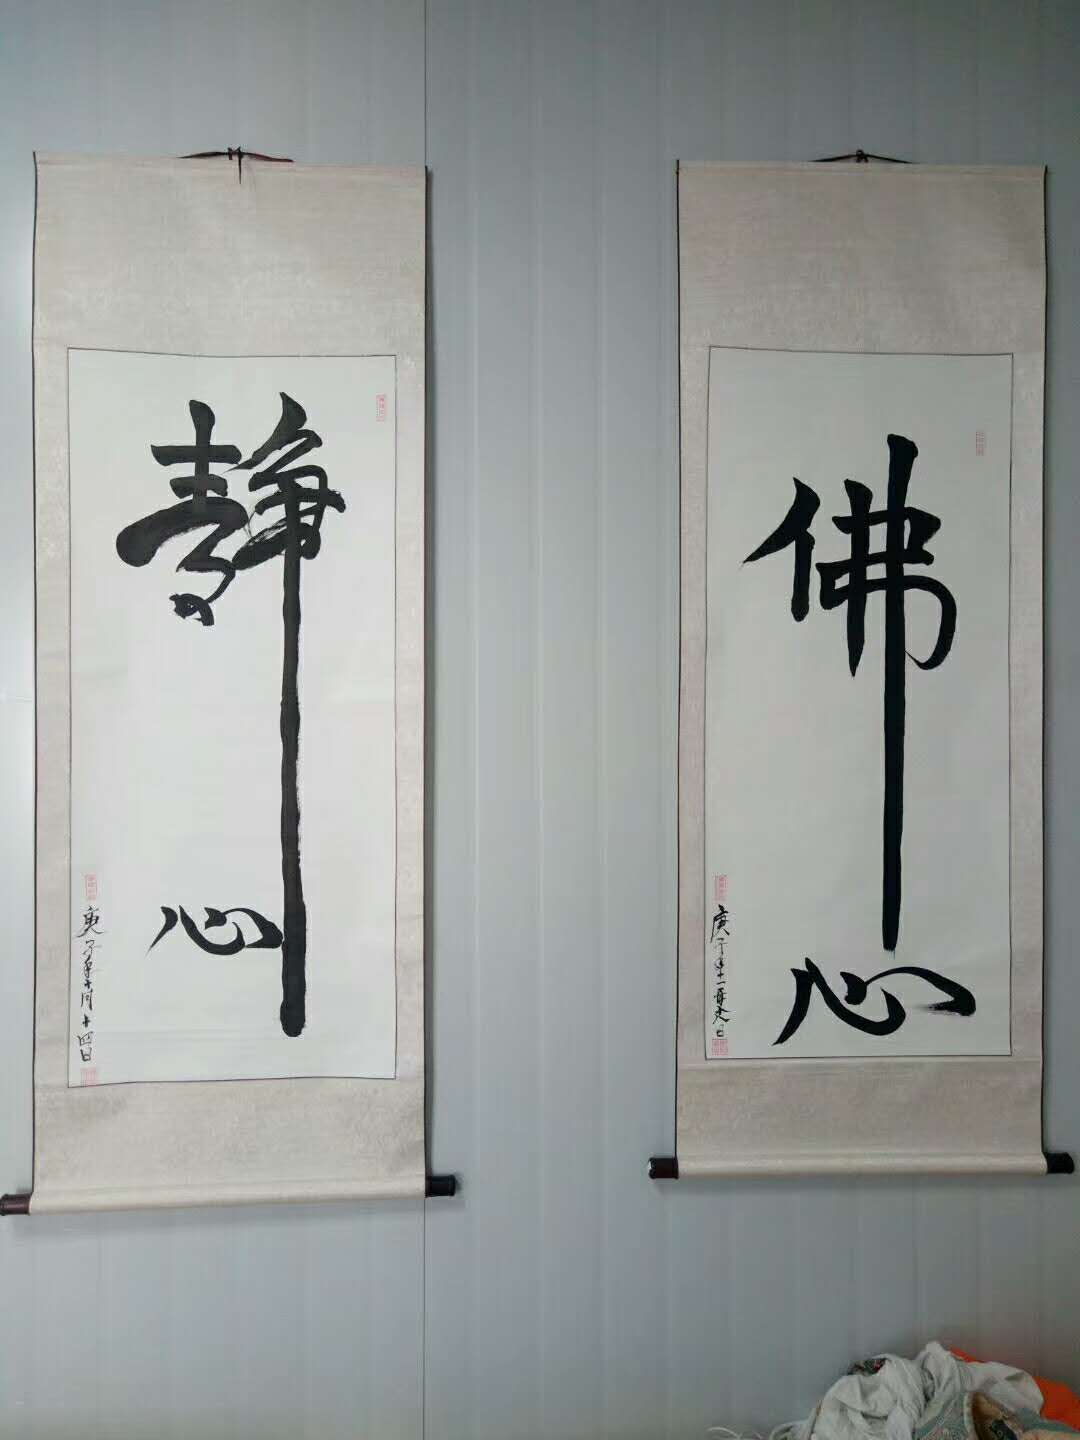 静
心
庚子年十月十四日
佛
心
庚子年十一